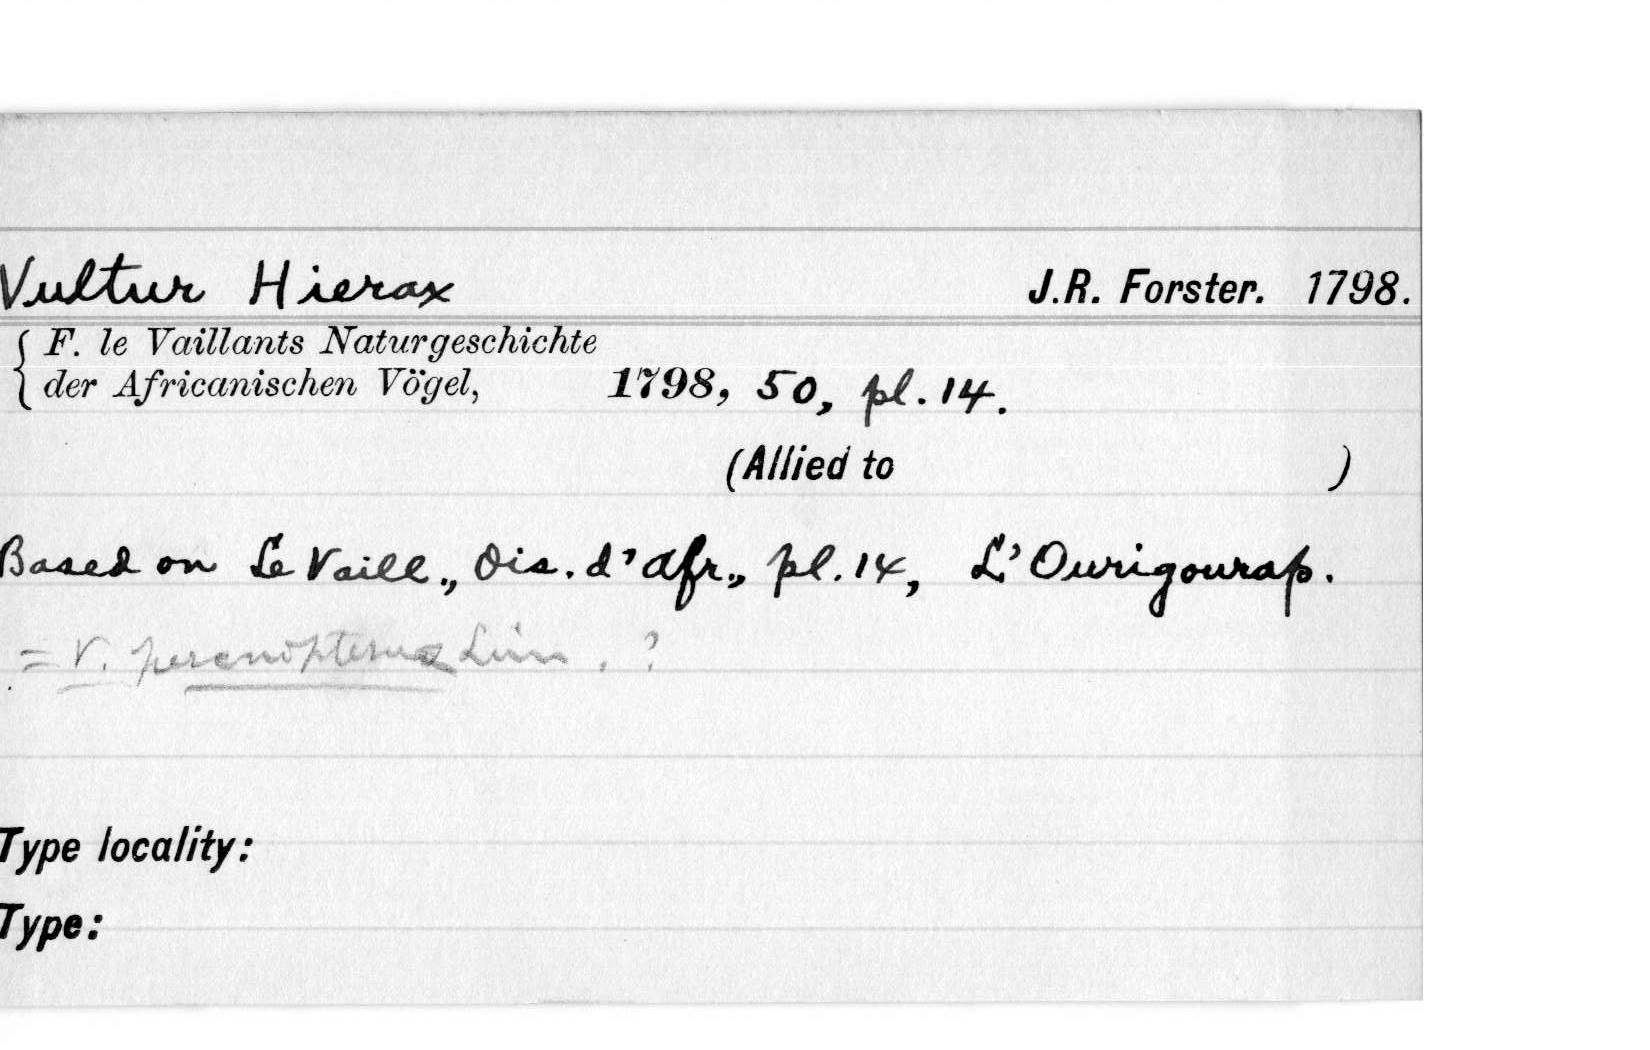 Vultur Hierax J.R. Forster. 1798.
F. le Vaillants Naturgeschichte
der Africanischen Vögel, 1798, 50, pl. 14.
(Allied to )
Based on Le Vaill., Ois. d'Afr., pl. 14, L'Ourigourap.
= V. percnopterus Linn. ?
Type locality:
Type: